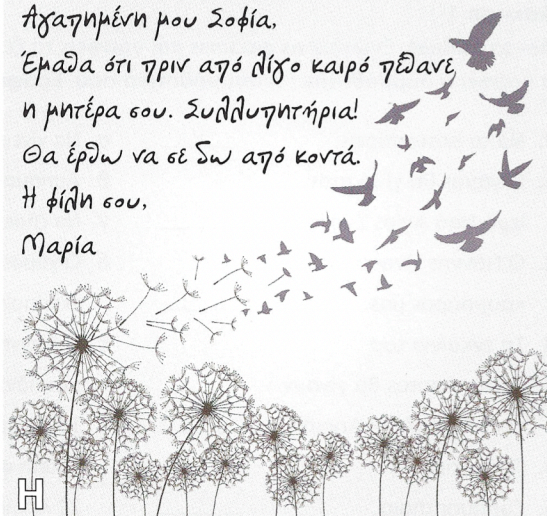 Αγαπημένη μου Σοφία,
Έμαθα ότι πριν από λίγο καιρό πέθανε
η μητέρα σου. Συλλυπητήρια!
Θα έρθω να σε δω από κοντά.
Η φίλη σου,
Μαρία
Η